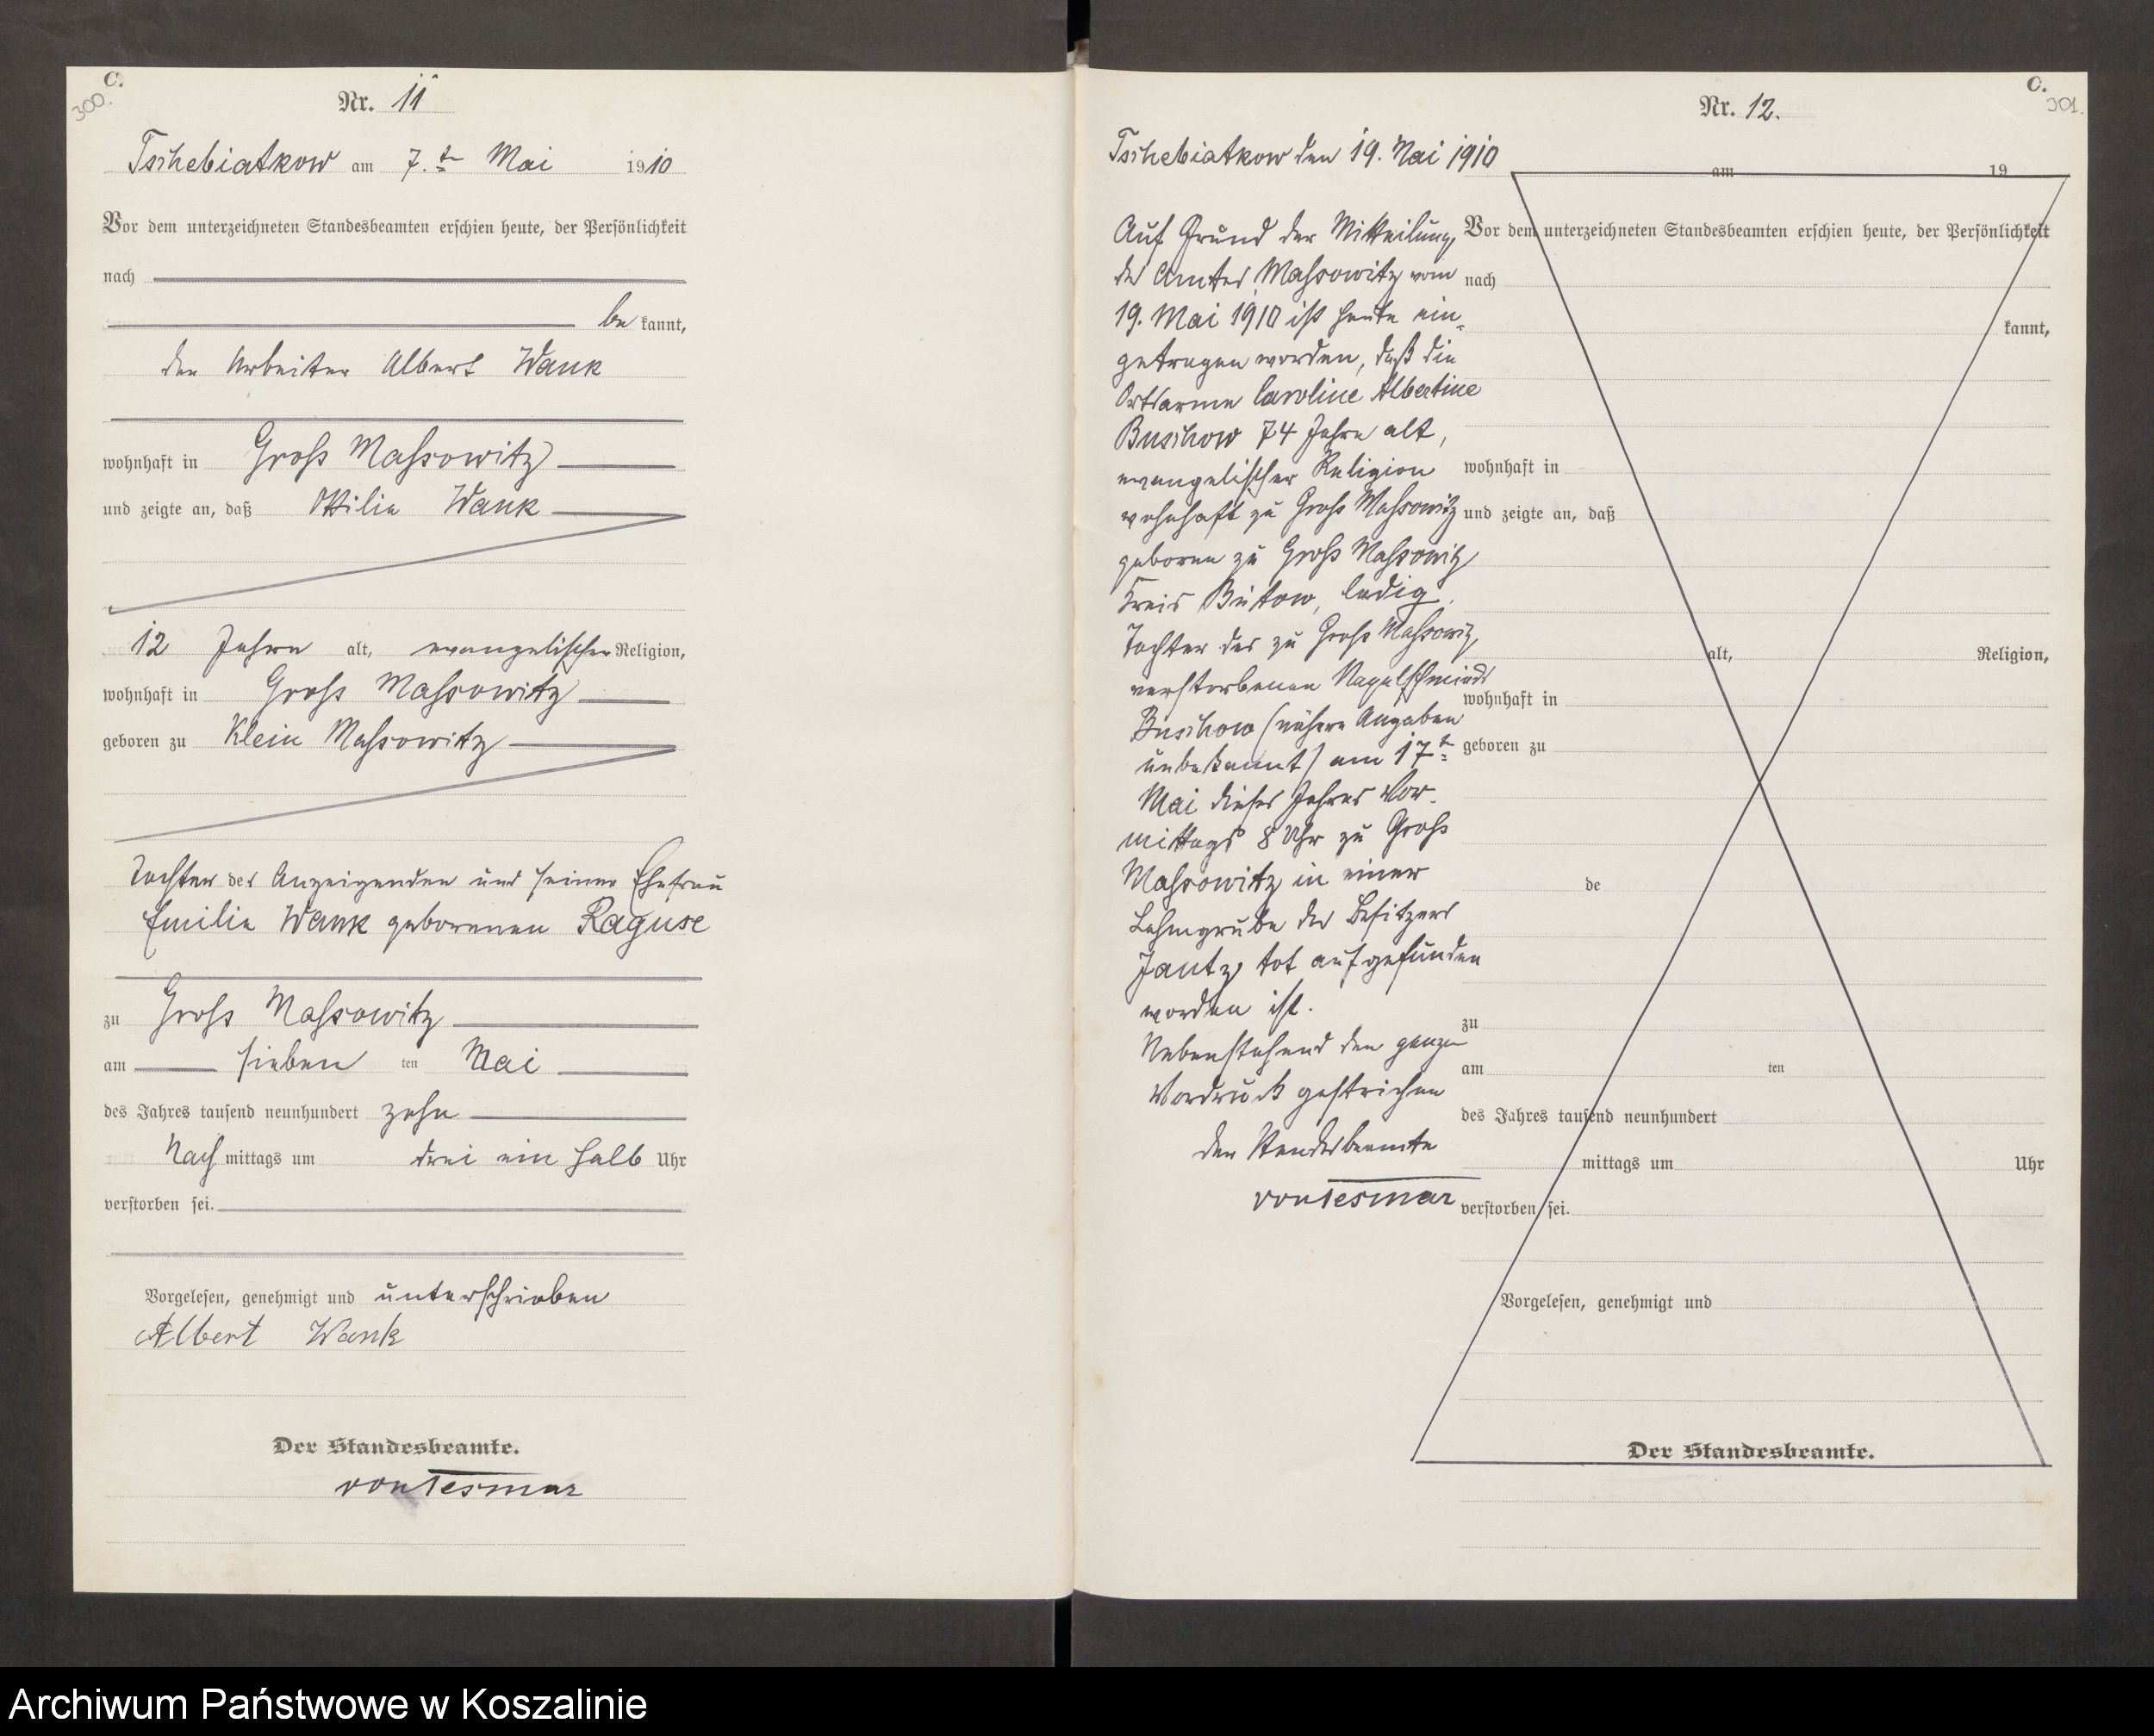 C.
300.
Nr. 11
Tschebiatkow am 7.ten Mai 1910
Vor dem unterzeichneten Standesbeamten erschien heute, der Persönlichkeit
nach
be kannt,
der Arbeiter Albert Wank
wohnhaft in Groß Massowitz
und zeigte an, daß Ottilie Wank
12 Jahre alt, evangelischer Religion,
wohnhaft in Groß Massowitz
geboren zu Klein Massowitz
Tochter des Anzeigenden und seiner Ehefrau
Emilie Wank geborenen Raguse
zu Groß Massowitz
am sieben ten Mai
des Jahres tausend neunhundert zehn
Nach mittags um drei ein halb Uhr
verstorben sei.
Vorgelesen, genehmigt und unterschrieben
Albert Wank
Der Standesbeamte.
von Tesmar
C.
301.
Nr. 12.
Tschebiatkow den 19. Mai 1910
Auf Grund der Mitteilung
des Amtes Massowitz vom
19. Mai 1910 ist heute ein-
getragen worden, daß die
Ortsarme Caroline Albertine
Buschow 74 Jahre alt,
evangelischer Religion
wohnhaft zu Groß Massowitz
geboren zu Groß Massowitz
Kreis Bütow, ledig,
Tochter des zu Groß Massowitz
verstorbenen Nagelschmieds
Buschow (nähere Angaben
unbekannt) am 17ten
Mai dieses Jahres Vor-
mittags 8 Uhr zu Groß
Massowitz in einer
Lehmgrube des Besitzers
Jantz tot aufgefunden
worden ist.
Nebenstehend den ganzen
Vordruck gestrichen
Der Standesbeamte
von Tesmar
am 19
Vor dem unterzeichneten Standesbeamten erschien heute, der Persönlichkeit
nach
kannt,
wohnhaft in
und zeigte an, daß
alt, Religion,
wohnhaft in
geboren zu
de
zu
am ten
des Jahres tausend neunhundert
mittags um Uhr
verstorben sei.
Vorgelesen, genehmigt und
Der Standesbeamte.
Archiwum Państwowe w Koszalinie